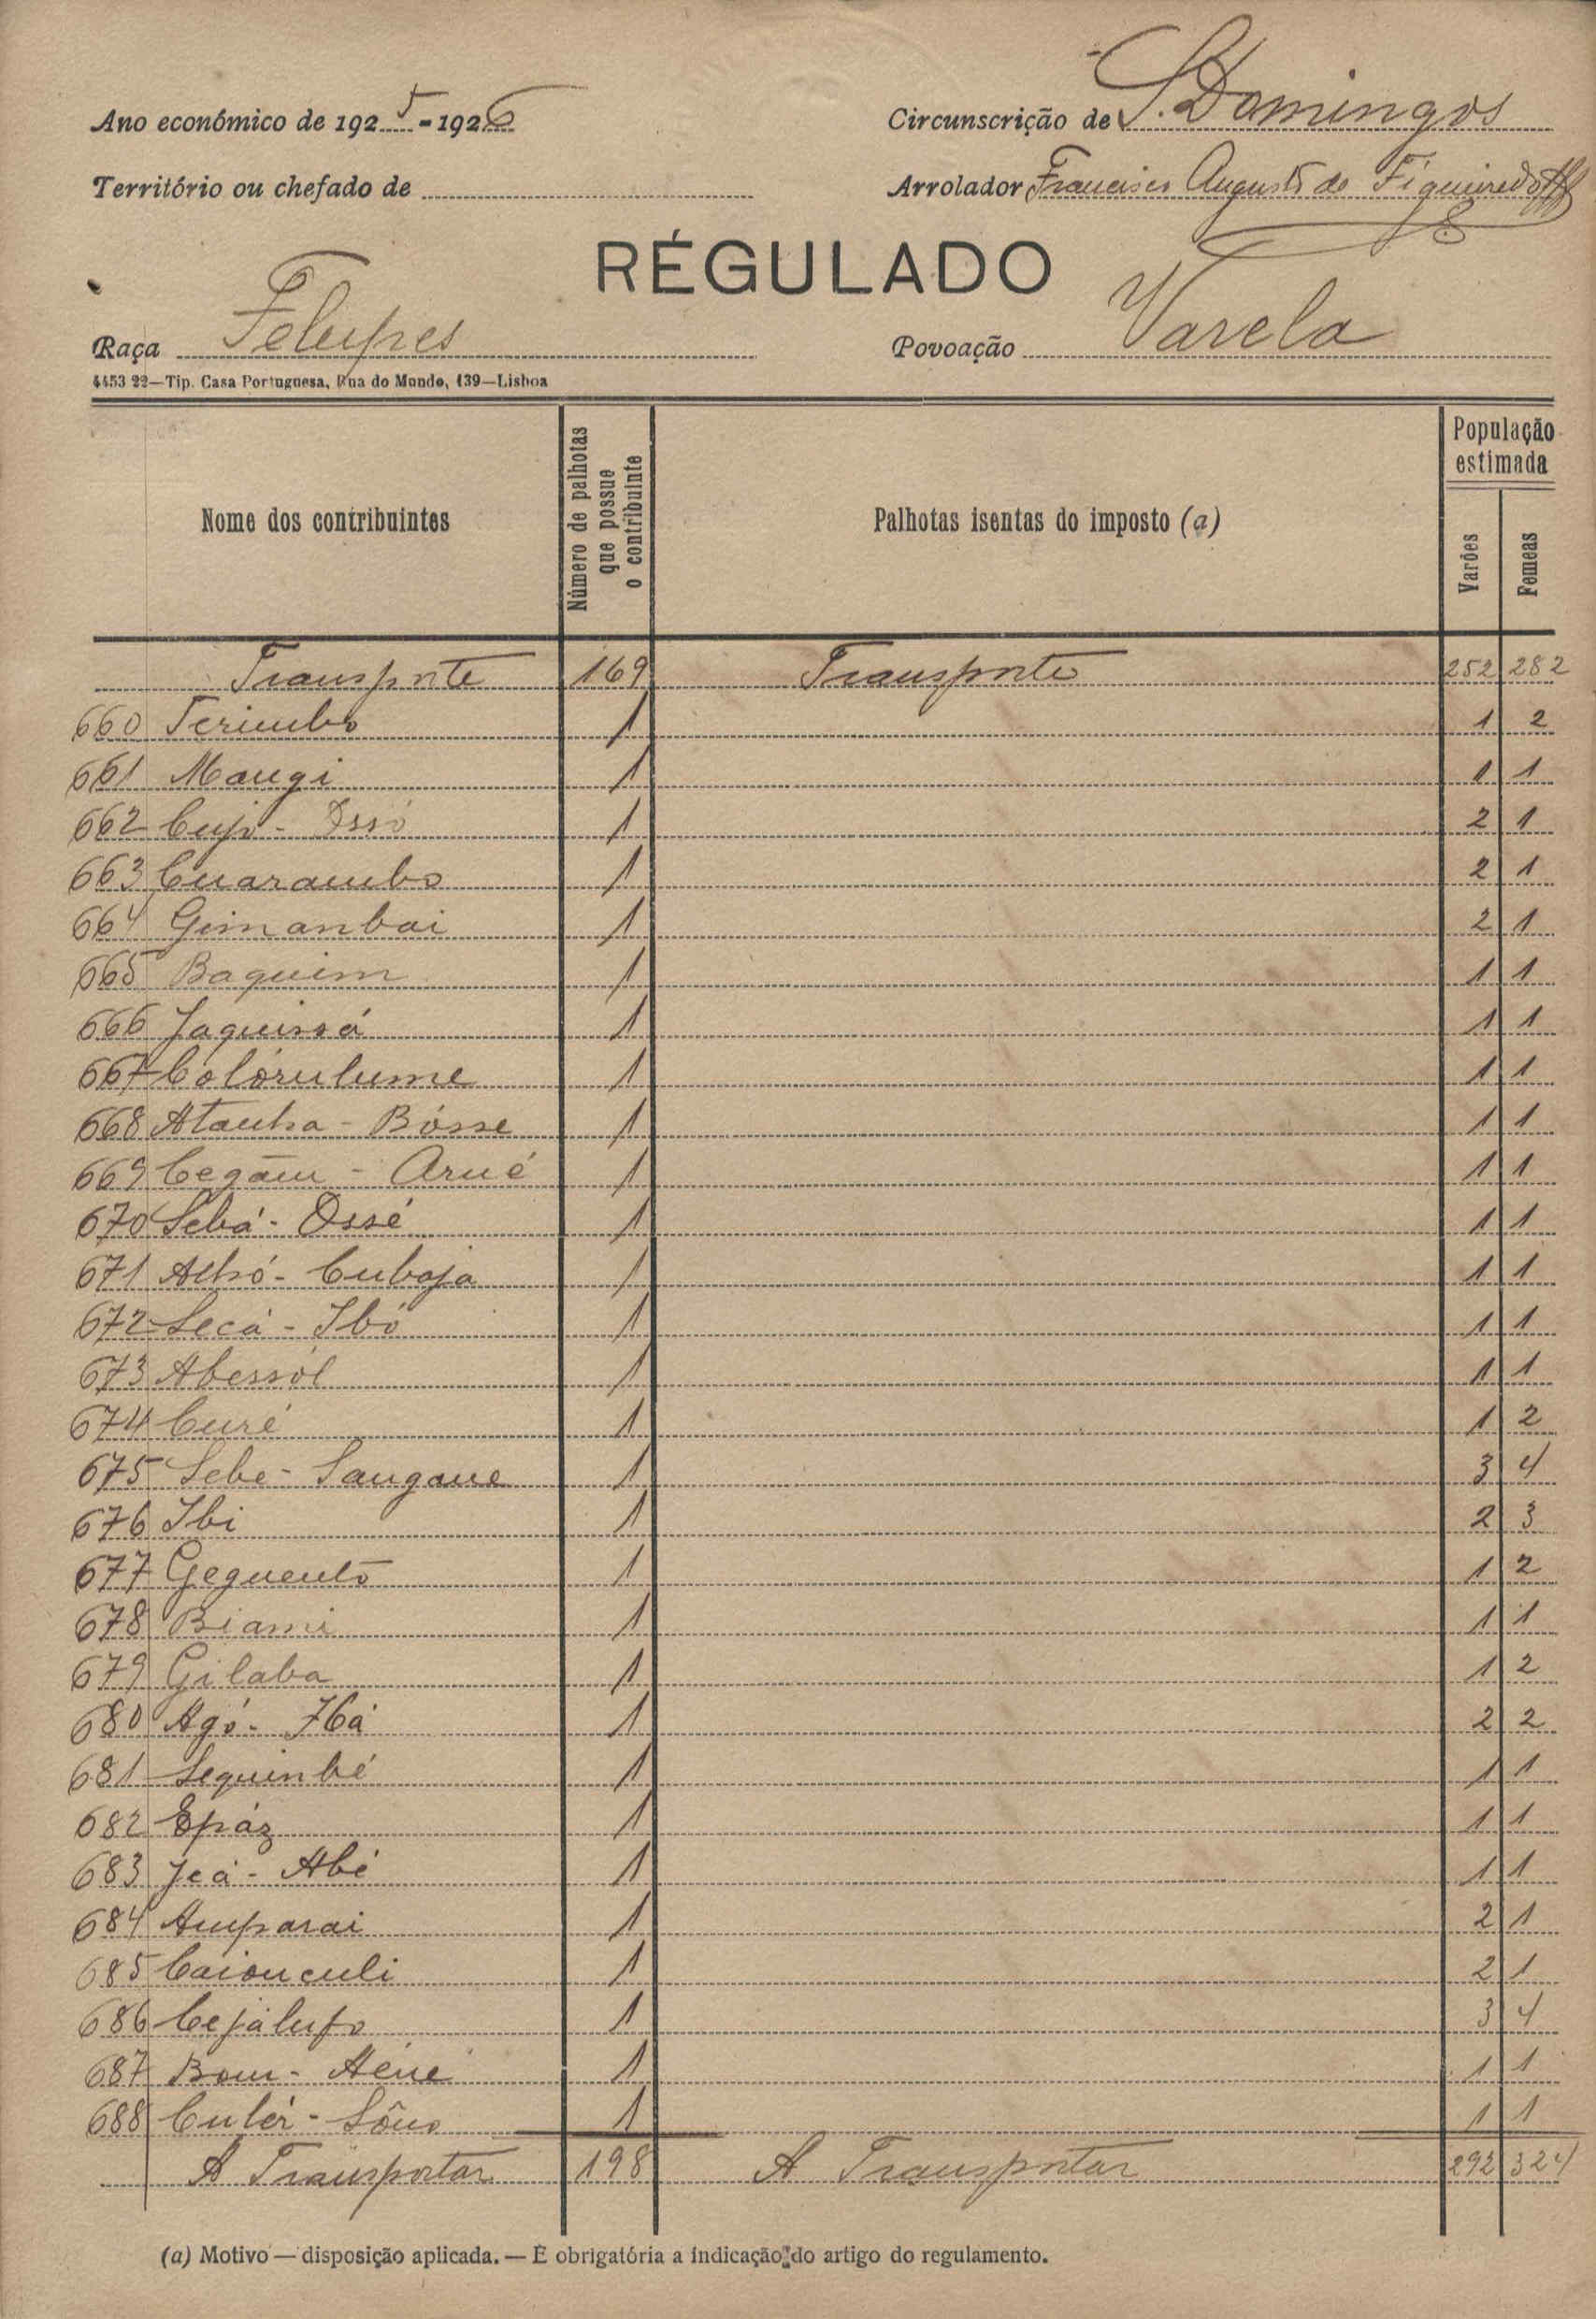 Ano económico de 1925-1926
Circunscrição de S. Domingos
Território ou chefado de
Arrolador Francisco Augusto de Figueiredo
RÉGULADO
Raça Felupes
Povoação Varela
4453 22—Tip. Casa Portuguesa, Rua do Mundo, 139—Lisboa
Nome dos contribuintes
Número de palhotas que possue o contribuinte
Palhotas isentas do imposto (a)
População estimada
Varões
Femeas
Transporte 169 Transporte 252 282
660 Terimbo 1 1 2
661 Maugi 1 1 1
662 Cujo - Issó 1 2 1
663 Cuarambo 1 2 1
664 Gimanbai 1 2 1
665 Baquim 1 1 1
666 Jaquissá 1 1 1
667 Colórulume 1 1 1
668 Atanha - Bósse 1 1 1
669 Cegãm - Arué 1 1 1
670 Sebá - Ossé 1 1 1
671 Alhó - Cubaja 1 1 1
672 Secá - Ibó 1 1 1
673 Abessól 1 1 1
674 Curé 1 1 2
675 Sebe - Sangane 1 3 4
676 Ibi 1 2 3
677 Gequentó 1 1 2
678 Biami 1 1 1
679 Gilaba 1 1 2
680 Agó - 1 2 2
681 Sequinbé 1 1 1
682 Epáz 1 1 1
683 Jeá - Abé 1 1 1
684 Amparai 1 2 1
685 Caionculi 1 2 1
686 Cejalufo 1 3 4
687 Bom - 1 1 1
688 Culér - Sôno 1 1 1
A Transportar 198 A Transportar 292 324
(a) Motivo — disposição aplicada. — É obrigatória a indicação do artigo do regulamento.